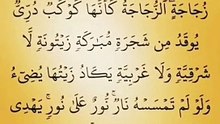 زُجَاجَةٍ ٱلزُّجَاجَةُ كَأَنَّهَا كَوْكَبٌ دُرِّىٌّ
يُوقَدُ مِن شَجَرَةٍ مُّبَٰرَكَةٍ زَيْتُونَةٍ لَّا
شَرْقِيَّةٍ وَلَا غَرْبِيَّةٍ يَكَادُ زَيْتُهَا يُضِىٓءُ
وَلَوْ لَمْ تَمْسَسْهُ نَارٌ نُّورٌ عَلَىٰ نُورٍ يَهْدِى